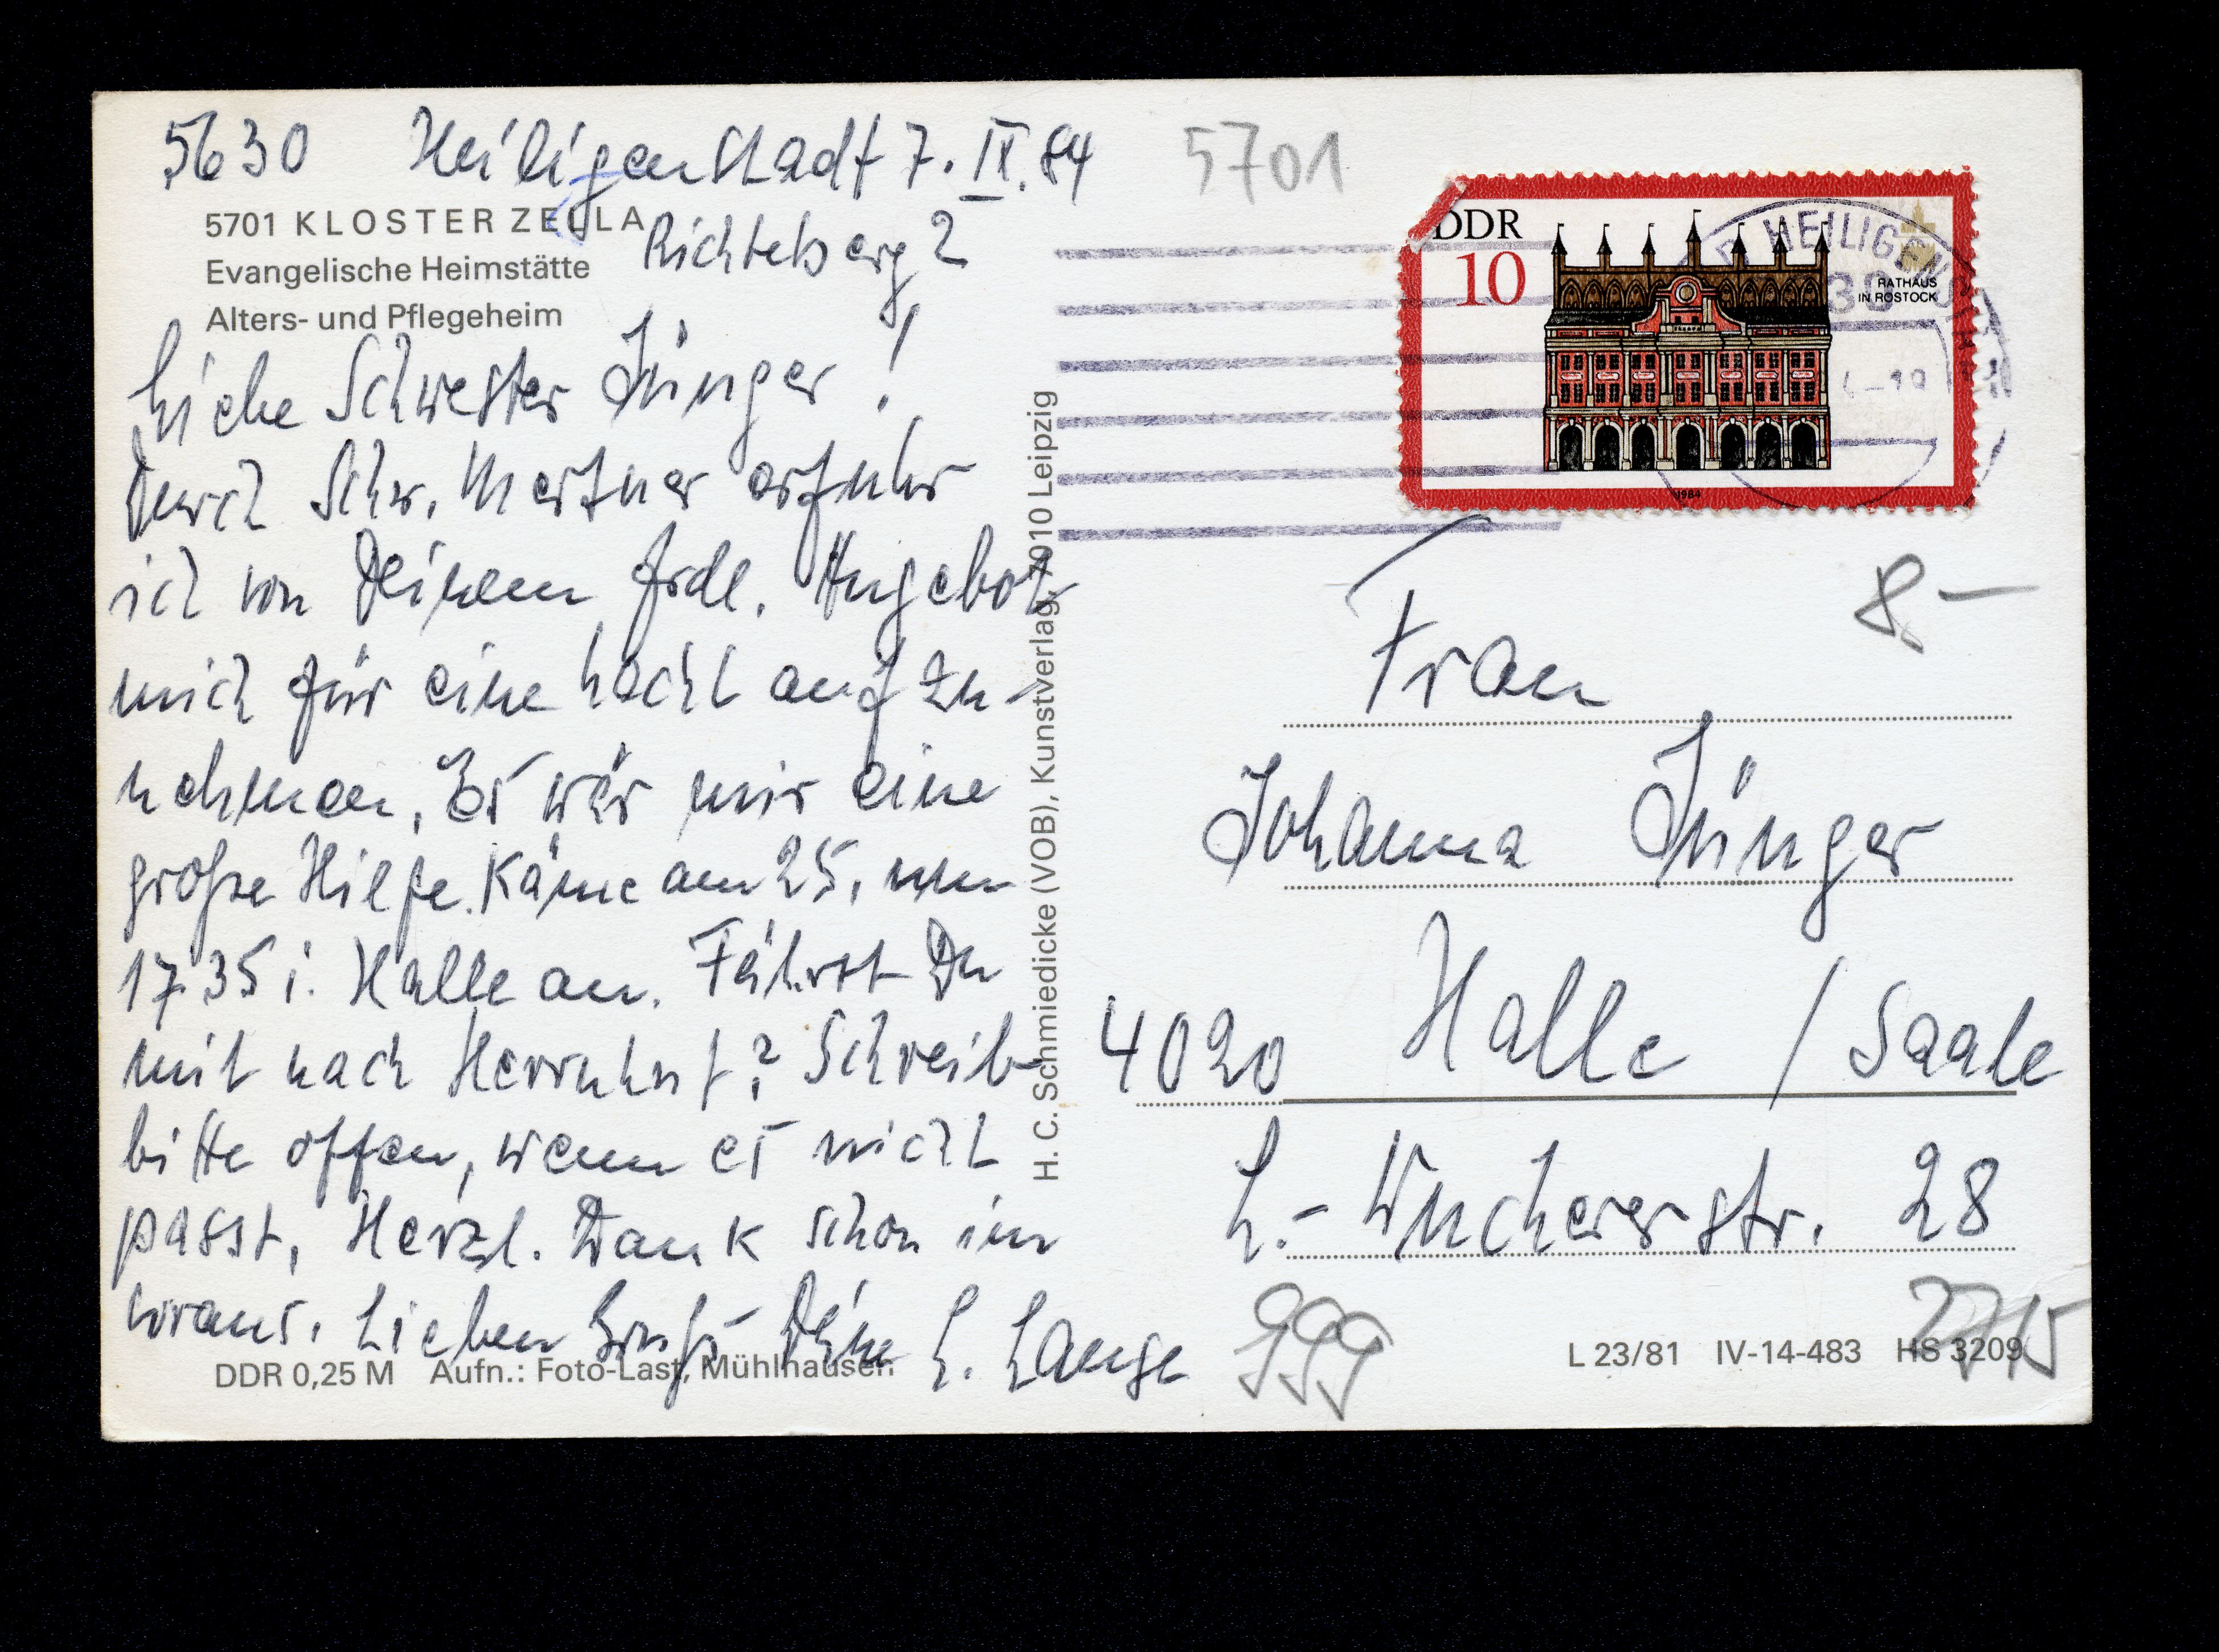 5630 Heiligenstadt 7. IX. 84
5701
5701 KLOSTER ZELLA
Evangelische Heimstätte
Alters- und Pflegeheim
2
Liebe Schwester Jünger!
Durch Schw. erfuhr
ich von Deinem frdl. Angebot
mich für eine Nacht auf zu-
nehmen. Es wär mir eine
große Hilfe. Käme am 25. um
17.35 i. Halle an. Fährst Du
mit nach Herrnhut? Schreib
bitte offen, wenn es nicht
passt. Herzl. Dank schon im
voraus. Lieben Gruß Deine L. Lange
DDR 0,25 M Aufn.: Foto-Last, Mühlhausen
H. C. Schmiedicke (VOB), Kunstverlag, 7010 Leipzig
DDR
10
RATHAUS
IN ROSTOCK
1984
HEILIGENSTADT
8-
Frau
Johanna Jünger
4020 Halle / Saale
L.-Wuchererstr. 28
999
2715
L 23/81 IV-14-483 HS 3209